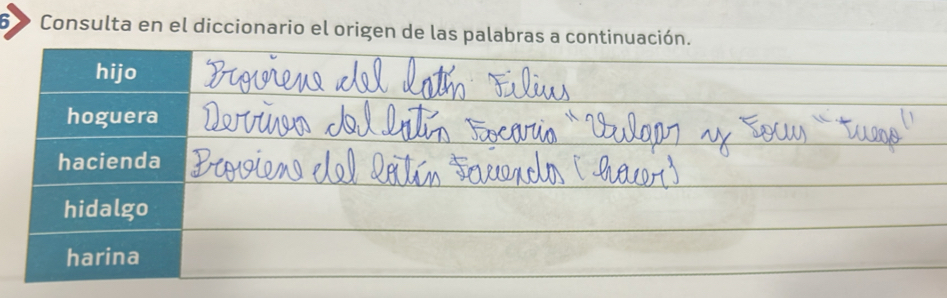 6 Consulta en el diccionario el origen de las palabras a continuación.
hijo Proviene del latín Filius
hoguera Deriva del latín Focaria "Vulgar y Focus "Fuego"
hacienda Proviene del latín Facienda (hacer)
hidalgo
harina